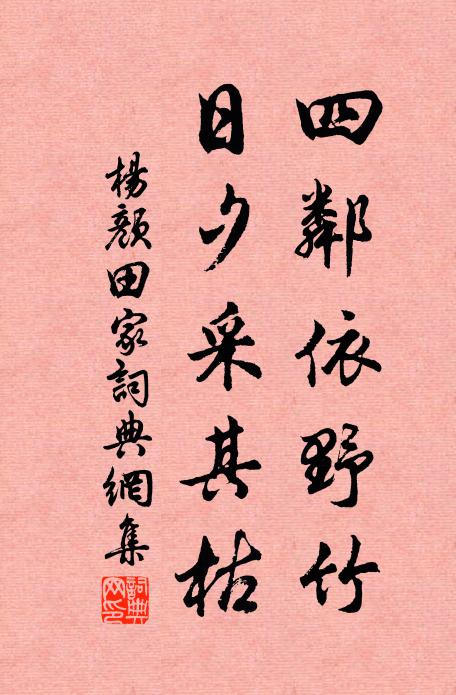 四鄰依野竹
日夕采其枯
楊顏田家詞典網集
詞典網印